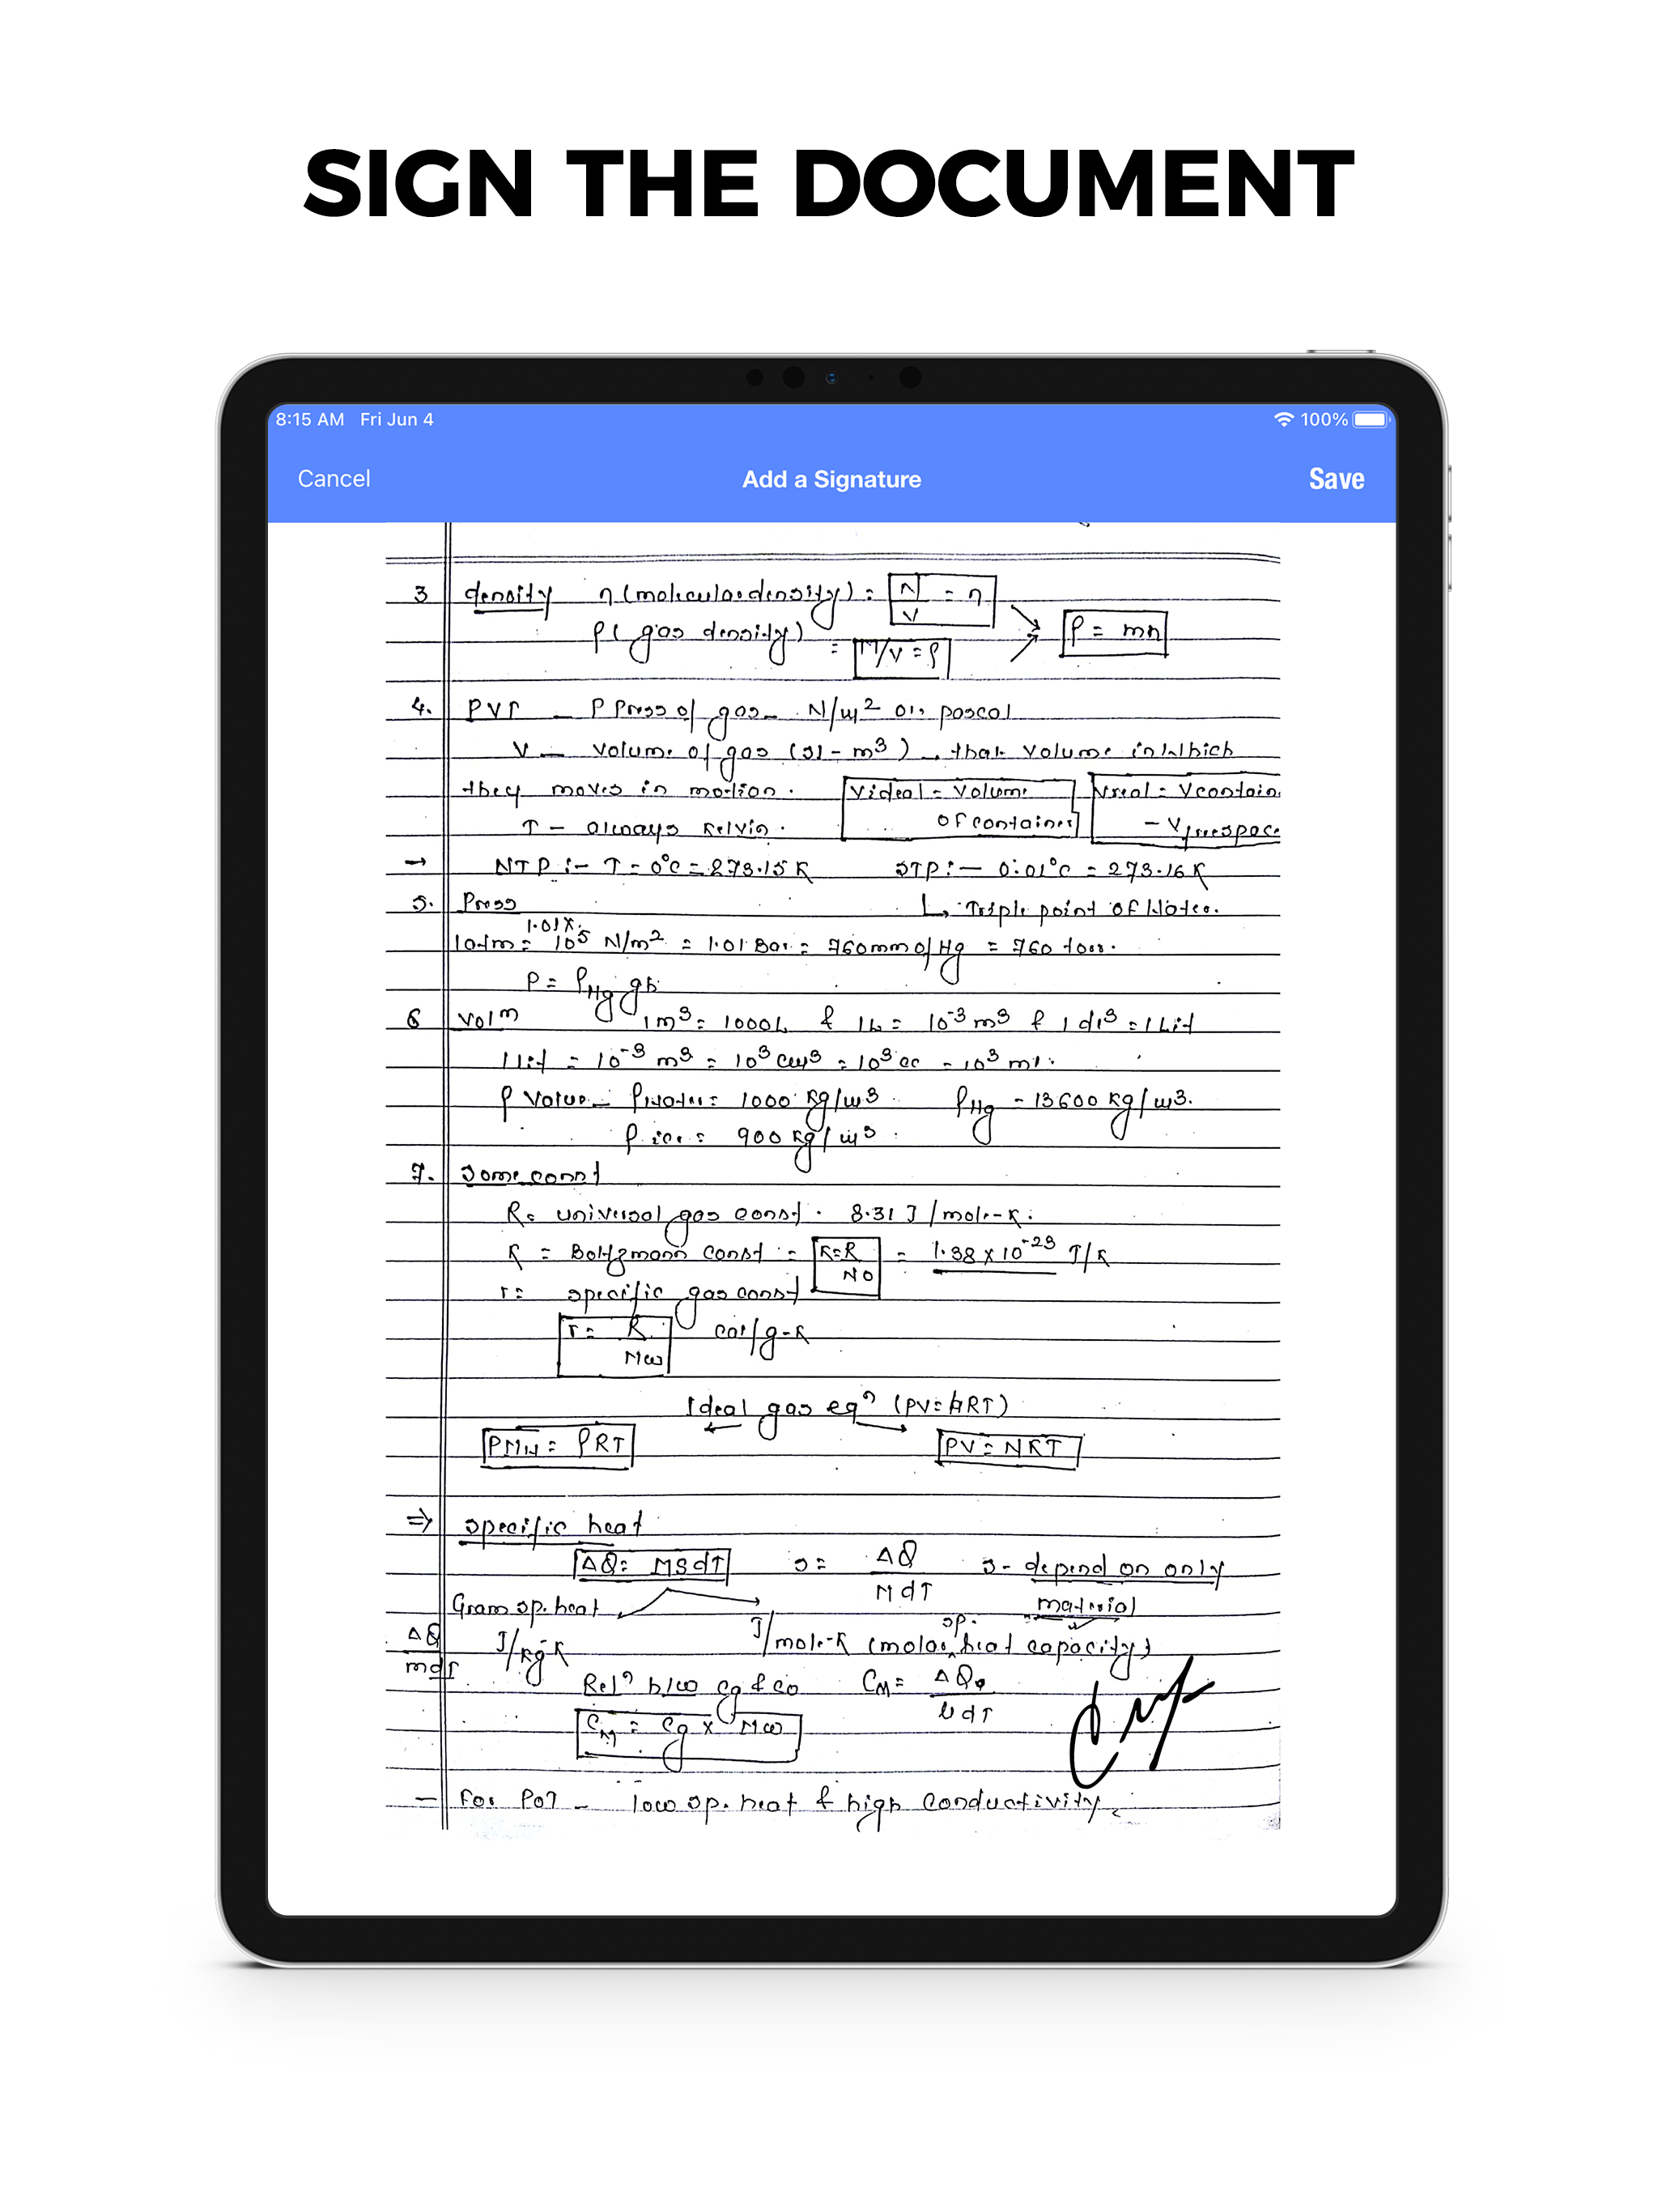 SIGN THE DOCUMENT
8:15 AM Fri Jun 4 100%
Cancel Add a Signature Save
3 density η (molecular density) = N/V = η
ρ ( gas density) = M/V = ρ ρ = mn
4. PVT – P Press of gas – N/m² or pascal
V – volume of gas (SI - m³) – that volume in which
they moves in motion. Videal = Volume of container Vreal = Vcontain - Vfreespace
T – always kelvin.
→ NTP :– T = 0°C = 273.15 K STP :– 0.01°C = 273.16 K
5. Press ↳ Triple point of Water.
1atm = 1.01 x 10⁵ N/m² = 1.01 Bar = 760 mm of Hg = 760 torr.
P = ρHg gh
6 Volm 1m³ = 1000L & 1L = 10⁻³ m³ & 1 d³ = 1 Lit
1 Lit = 10⁻³ m³ = 10³ cm³ = 10³ cc = 10³ ml.
ρ Value – ρwater = 1000 kg/m³ ρHg = 13600 kg/m³.
ρ ice = 900 kg/m³.
7. Some const
R = universal gas const. 8.31 J/mole-K.
K = Boltzmann const = K=R/N0 = 1.38 x 10⁻²³ J/K
r = specific gas const
r = R/Mw cal/g-K
Ideal gas eqn (PV = nRT)
PMw = ρRT PV = NKT
⇒ specific heat
ΔQ = MSdT s = ΔQ/MdT s - depend on only material
Gram sp. heat
ΔQ/mdT J/kg-K J/mole-K (molar sp. heat capacity)
Reln b/w Cg & Co CM = ΔQ/μdT
CM = Cg x Mw
– For POT – low sp. heat & high conductivity.